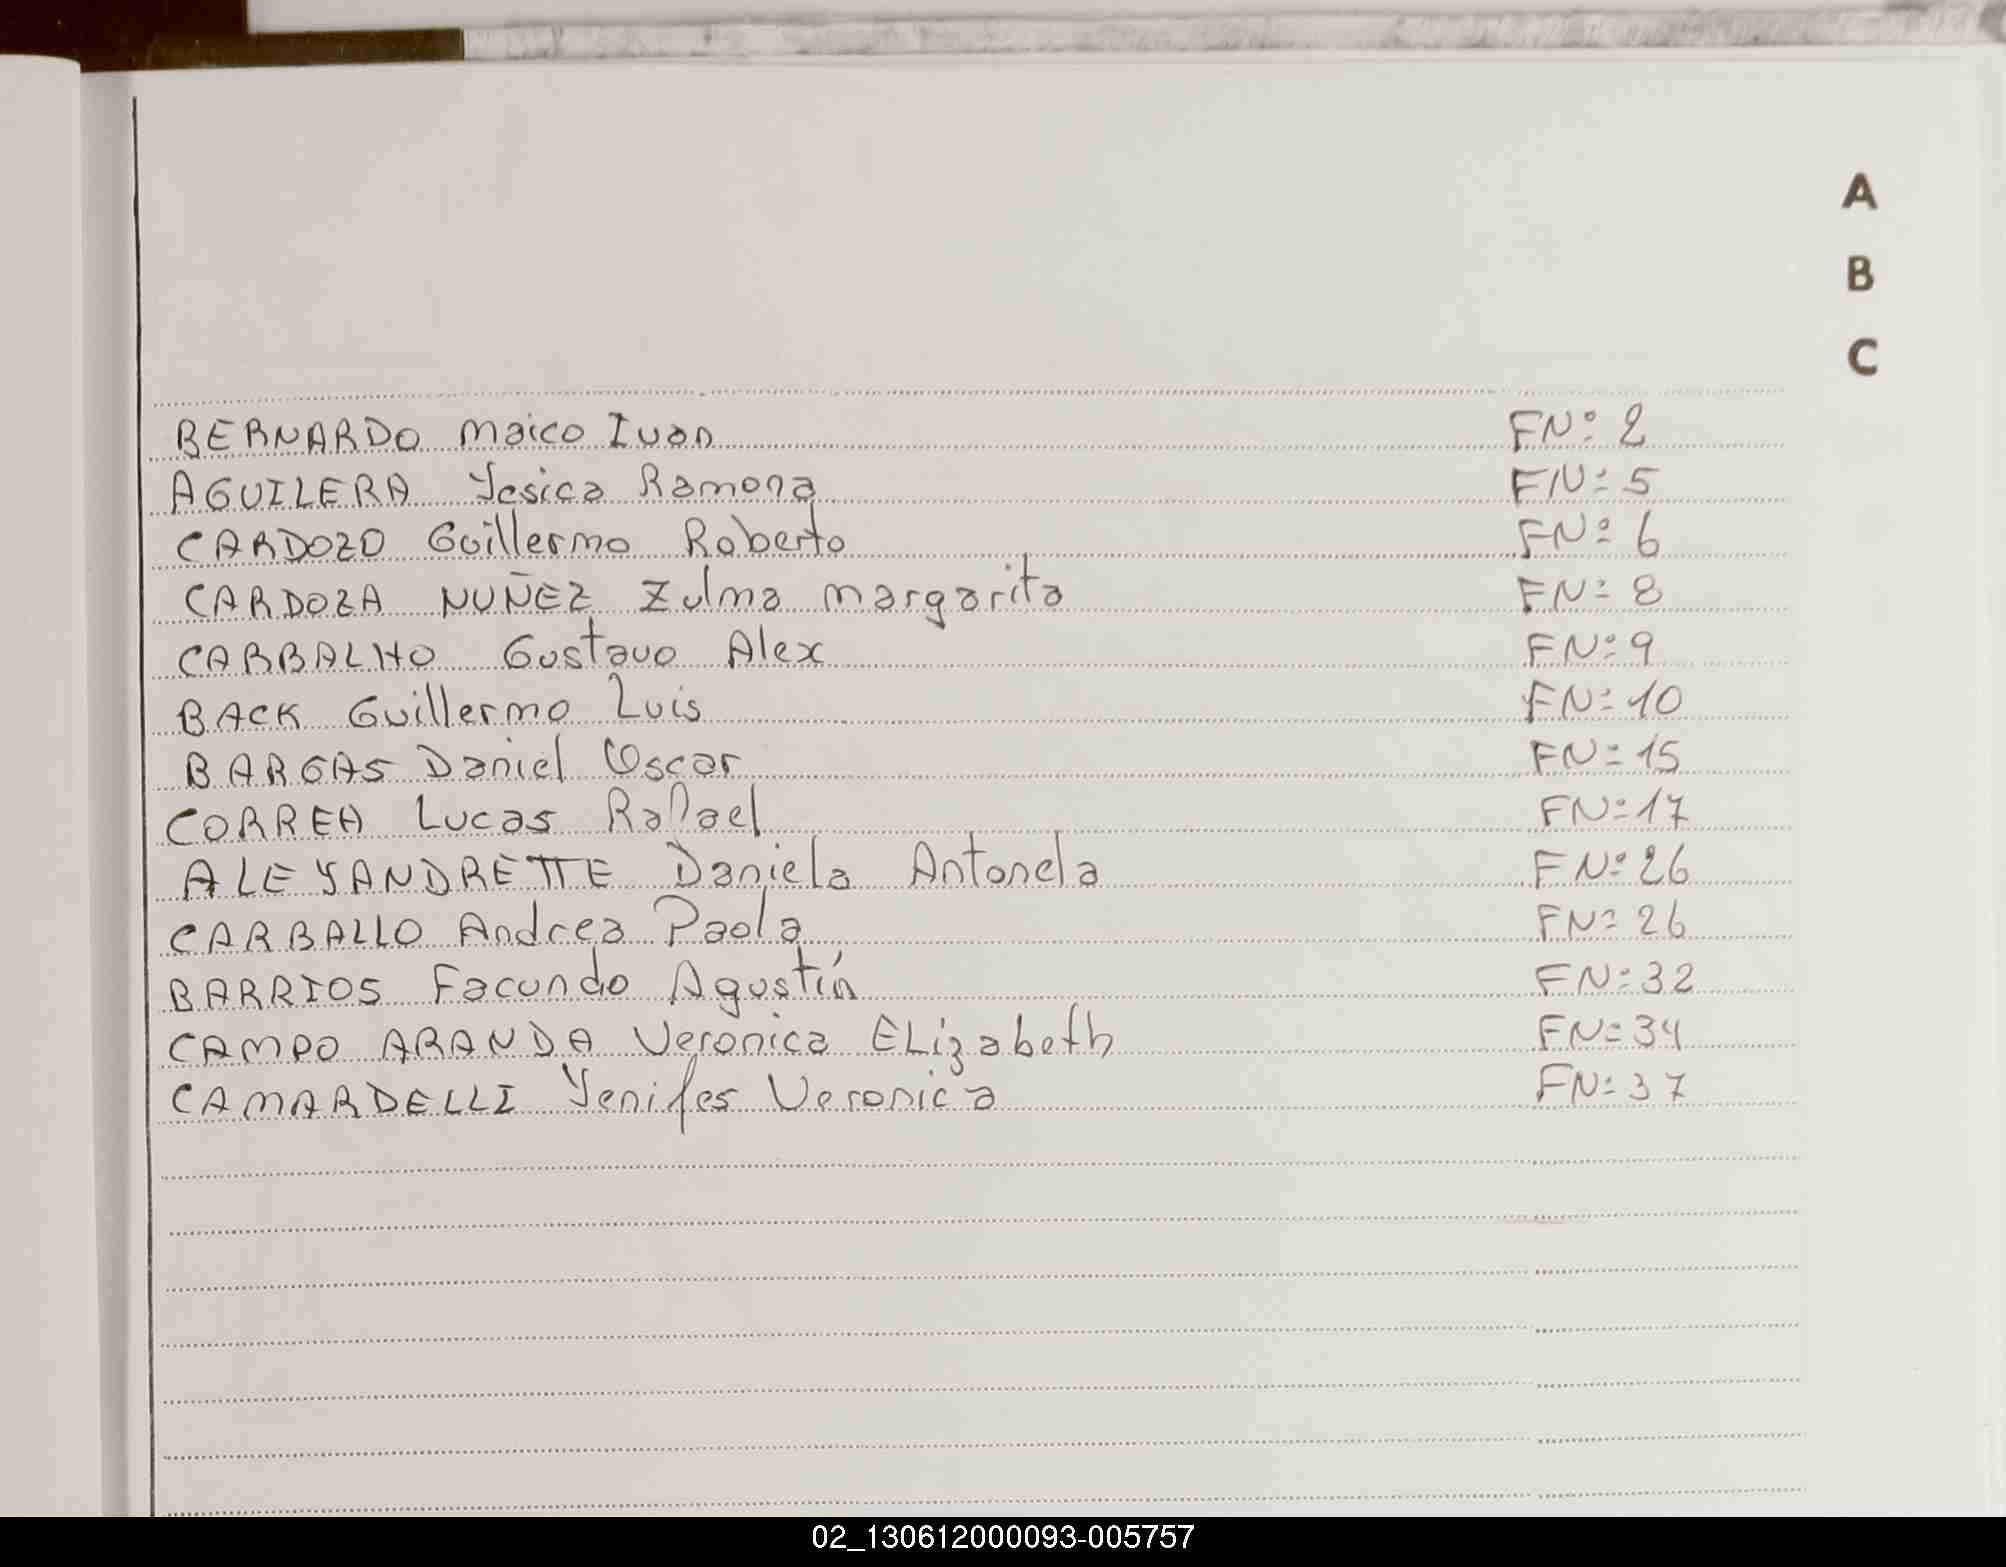 A
B
C
BERNARDO Maico Ivan FN: 2
AGUILERA Yesica Ramona FN: 5
CARDOZO Guillermo Roberto FN: 6
CARDOZA NUÑEZ Zulma Margarita FN: 8
CARBALHO Gustavo Alex FN: 9
BACK Guillermo Luis FN: 10
BARGAS Daniel Oscar FN: 15
CORREA Lucas Rafael FN: 17
ALEYANDRETTE Daniela Antonela FN: 26
CARBALLO Andrea Paola FN: 26
BARRIOS Facundo Agustín FN: 32
CAMPO ARANDA Veronica ELizabeth FN: 34
CAMARDELLI Yenifer Veronica FN: 37
02_130612000093-005757